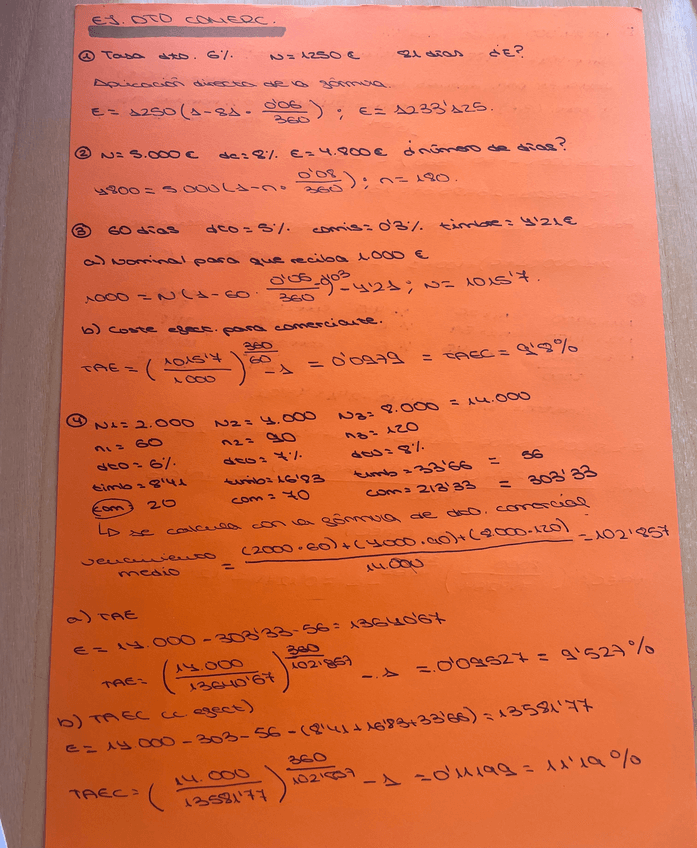 EJ. DTO COMERC.
① Tasa dto. 6% N=1250€ 81 días ¿E?
Aplicación directa de la fórmula.
E = 1250(1-81· 0'06/360) ; E= 1233'125.
② N= 5.000€ dc= 8% E= 4.800€ ¿número de días?
4800 = 5.000(1-n· 0'08/360); n=180.
③ 60 días dto = 5% comis = 0'3% timbre = 4'21€
a) Nominal para que reciba 1.000 €
1000 = N(1-60· 0'05 0'03/360) -4'21; N= 1015'7.
b) Coste efect. para comerciante.
TAE = (1015'7/1000)^360/60 -1 = 0'0979 = TAEC = 9'8%
④ N1= 2.000 N2= 4.000 N3= 8.000 = 14.000
n1 = 60 n2 = 90 n3 = 120
dto = 6% dto = 7% dto = 8%
timb = 8'41 timb = 16'83 timb = 33'66 = 56
com = 20 com = 70 com = 213'33 = 303'33
↳ se calcula con la fórmula de dto. comercial
vencimiento medio = (2000·60)+(4000·90)+(8000·120)/14.000 = 102'857
a) TAE
E = 14.000 - 303'33 - 56 = 13640'67
TAE = (14.000/13640'67)^360/102'857 -1 = 0.09527 = 9'527%
b) TAEC (c. efect)
E = 14.000 - 303 - 56 - (8'41 + 16'83 + 33'66) = 13581'77
TAEC = (14.000/13581'77)^360/102'857 -1 = 0'11199 = 11'19%